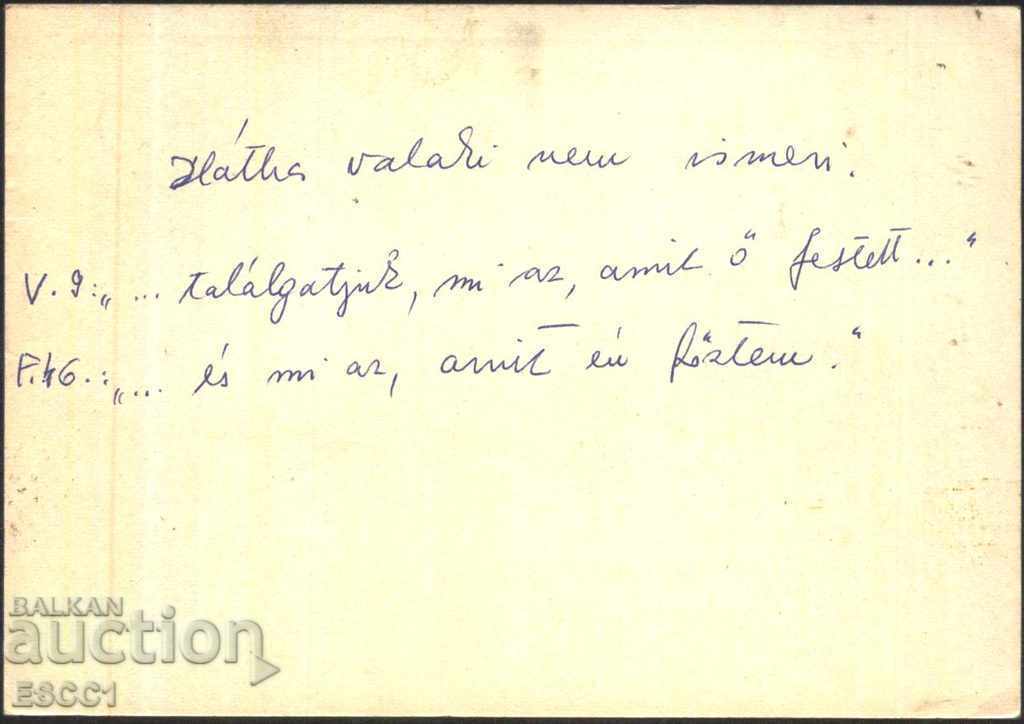 Hátha valaki nem ismeri.
V. 9: „... találgatjuk, mi az, amit ő festett..."
F. 46.: „... és mi az, amit én főztem."
BALKAN
auction
ESCC1